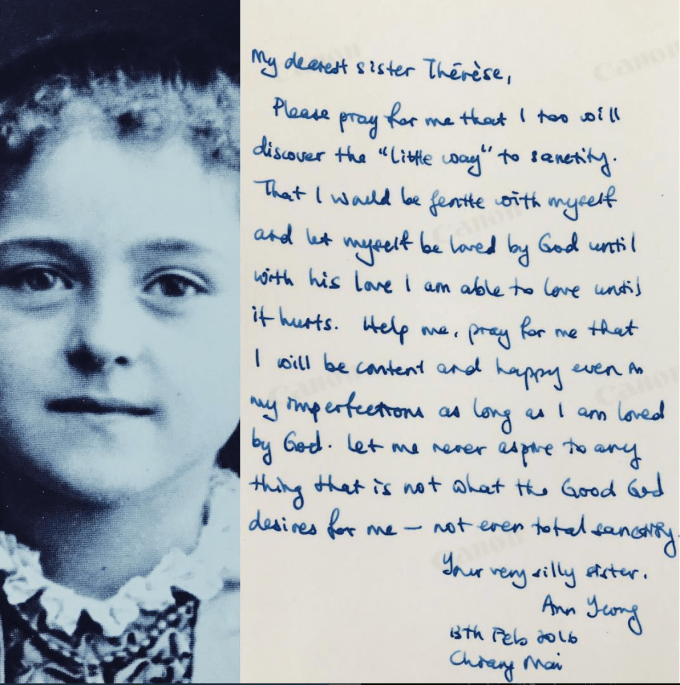 My dearest sister Thérèse,
Please pray for me that I too will
discover the "little way" to sanctity.
That I would be gentle with myself
and let myself be loved by God until
with his love I am able to love until
it hurts. Help me, pray for me that
I will be content and happy even in
my imperfections as long as I am loved
by God. Let me never aspire to any
thing that is not what the Good God
desires for me – not even total sanctity.
Your very silly sister.
Ann Yeong
13th Feb 2016
Chiang Mai
Canon
Canon
Canon
Canon
Canon
Canon